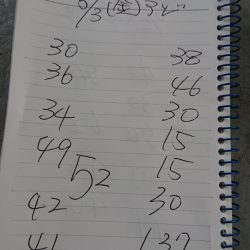 6/3(金)
30 38
36 46
34 30
49 15
52 15
42 30
41 137